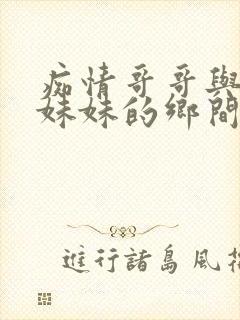 痴情哥哥與
妹妹的鄉間
進行諸島風